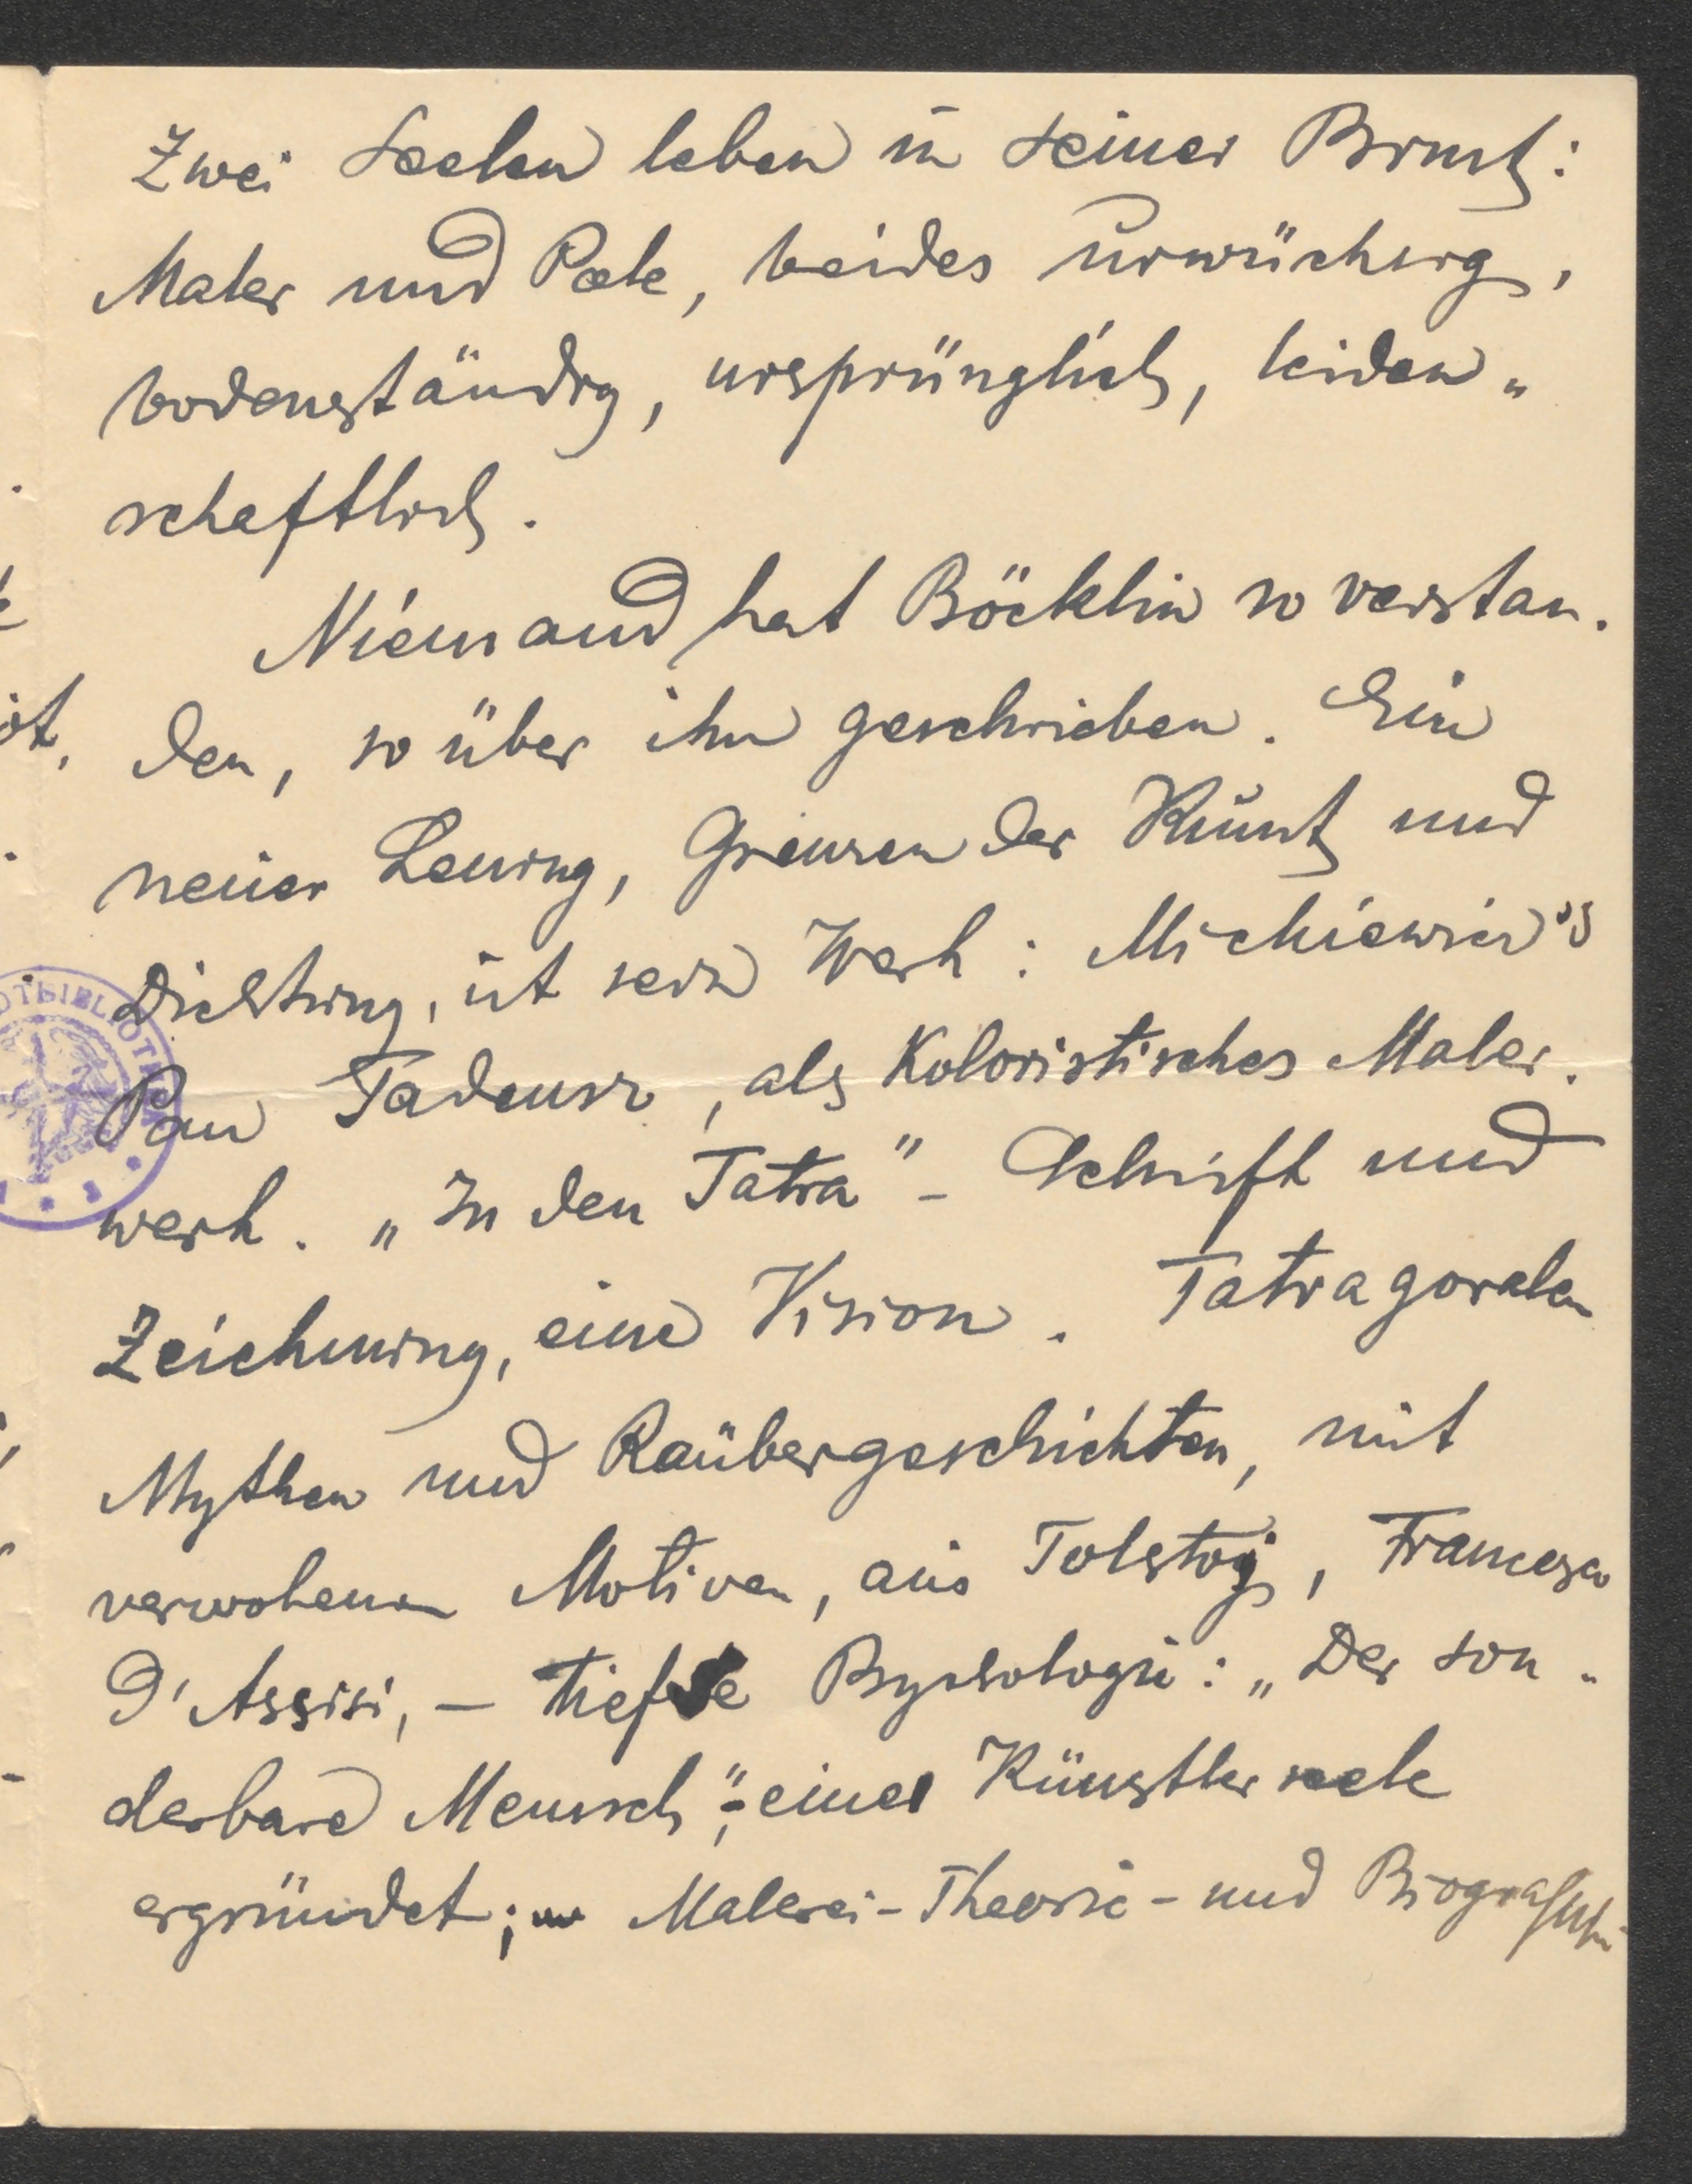 Zwei Seelen leben in seiner Brust:
Maler und Poete, beides urwüchsig,
bodenständig, ursprünglich, leiden„
schaftlich.
Niemand hat Böcklin so verstan.
den, so über ihn geschrieben. Ein
neuer Lessing, Grenzen der Kunst und
Dichtung, ist sein Werk: Mickiewicz's
Pan Tadeusz, als Koloristisches Maler.
werk. „In den Tatra" - Schrift und
Zeichnung, eine Vision. Tatragoralen
Mythen und Raübergeschichten, mit
verwobenen Motiven, aus Tolstoj, Francesco
D'Assisi, – tiefste Psychologie: „Der son-
derbare Mensch", - eine Künstlerseele
ergründet; Malerei-Theorie - und Biografisch